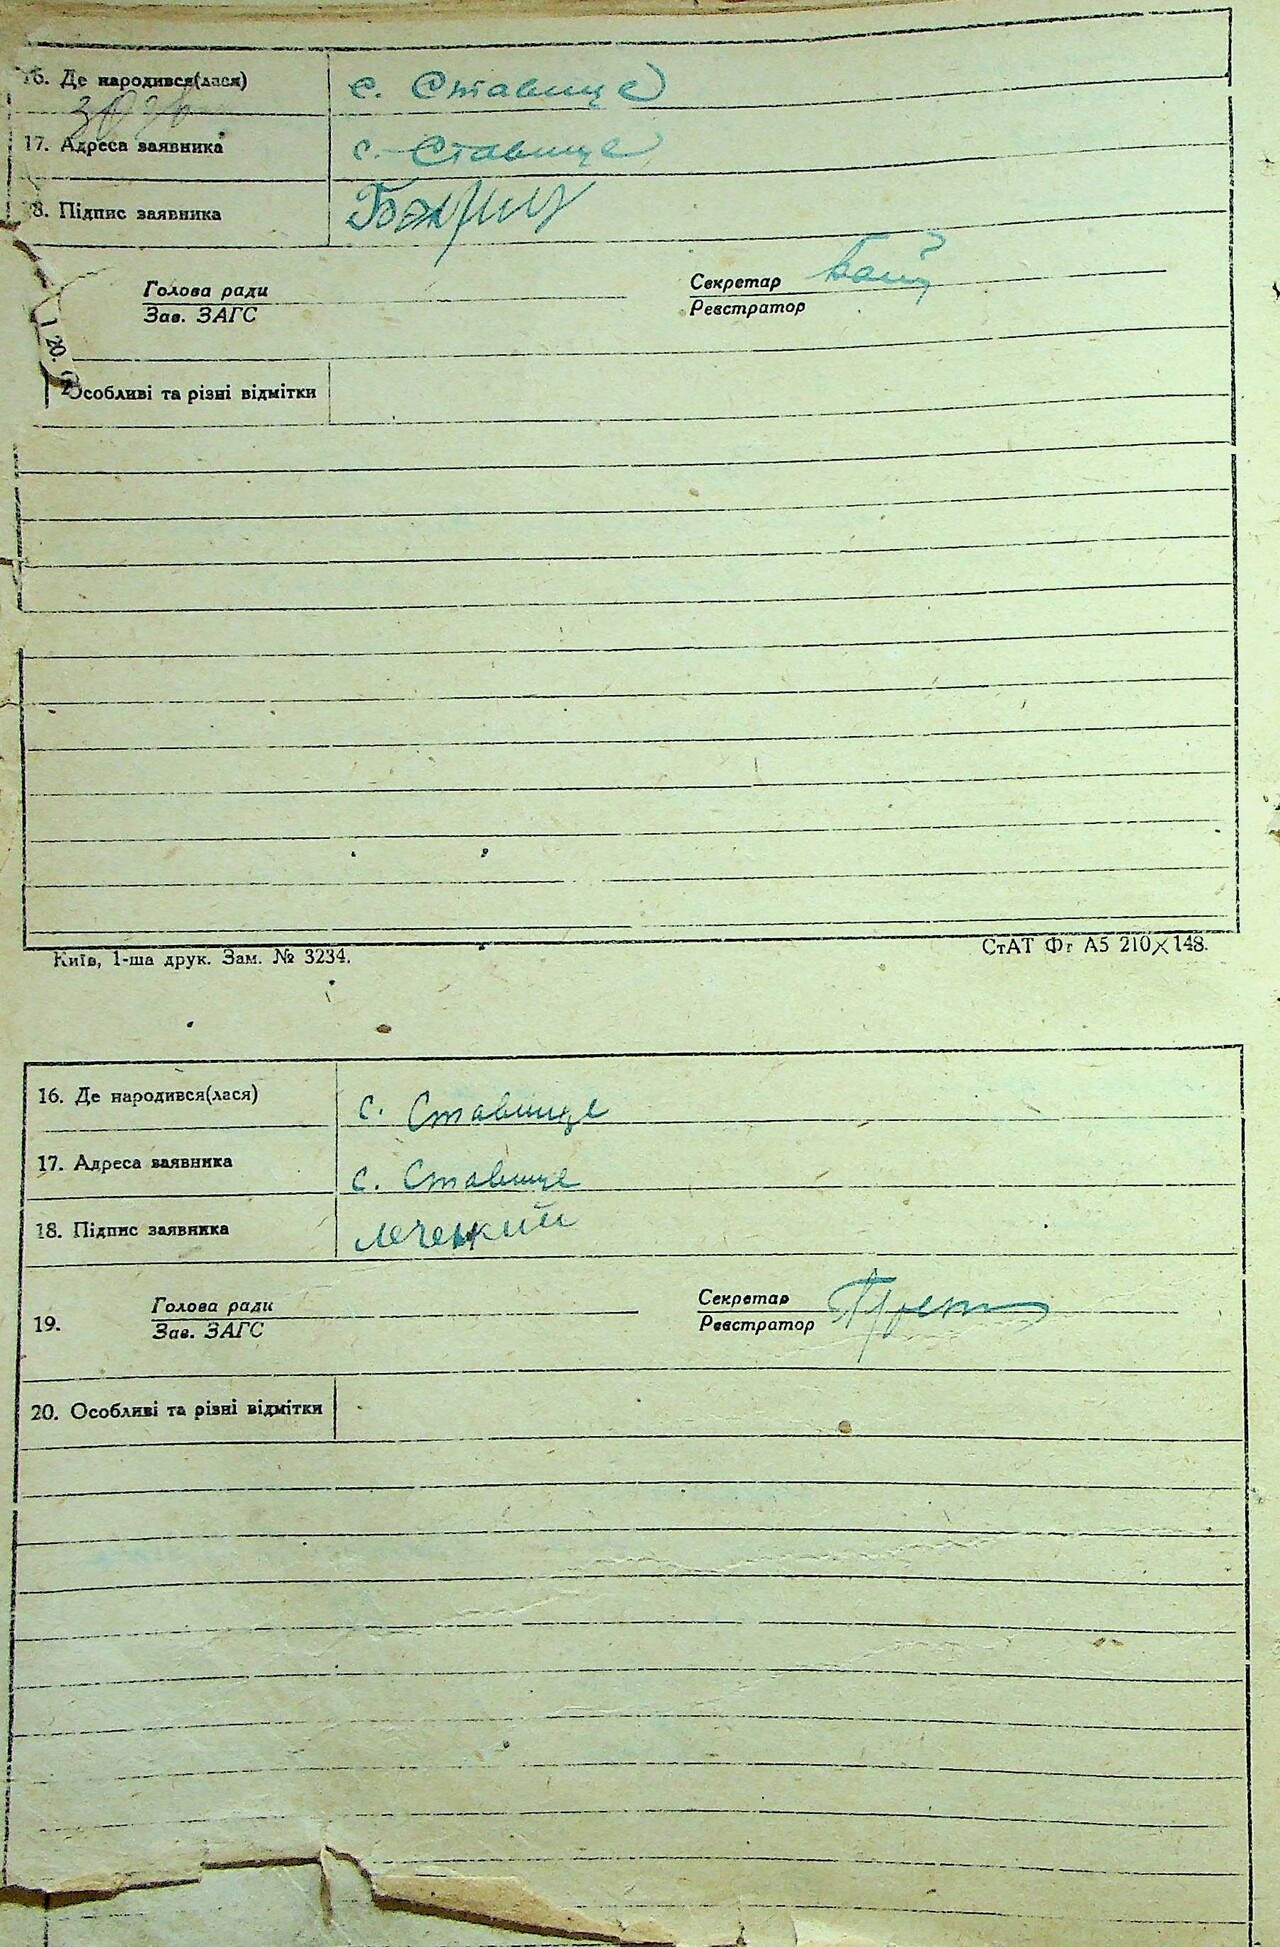 16. Де народився(лася) с. Ставище
17. Адреса заявника с. Ставище
8. Підпис заявника
Голова ради Секретар
Зав. ЗАГС Реєстратор
Особливі та різні відмітки
Київ, 1-ша друк. Зам. № 3234. СтАТ Фг А5 210×148.
16. Де народився(лася) с. Ставище
17. Адреса заявника с. Ставище
18. Підпис заявника
19. Голова ради Секретар
Зав. ЗАГС Реєстратор
20. Особливі та різні відмітки